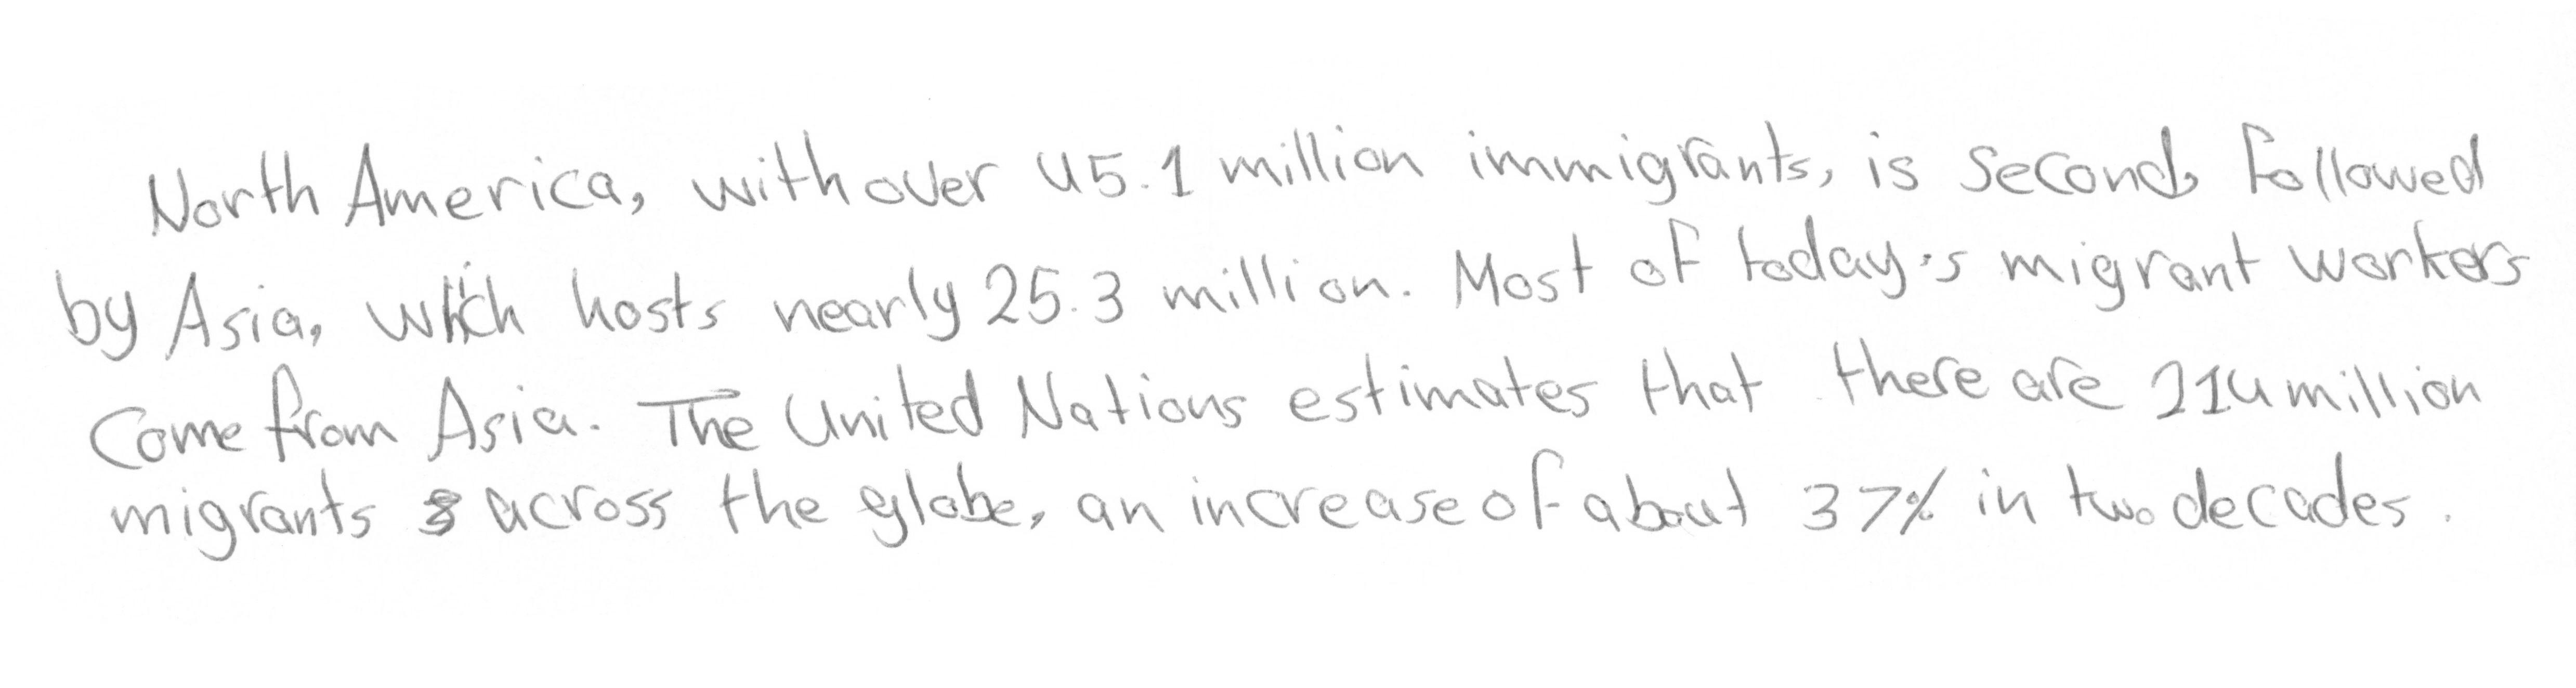 North America, with over 45.1 million immigrants, is second, followed
by Asia, which hosts nearly 25.3 million. Most of today's migrant workers
come from Asia. The United Nations estimates that there are 214 million
migrants across the globe, an increase of about 37% in two decades.